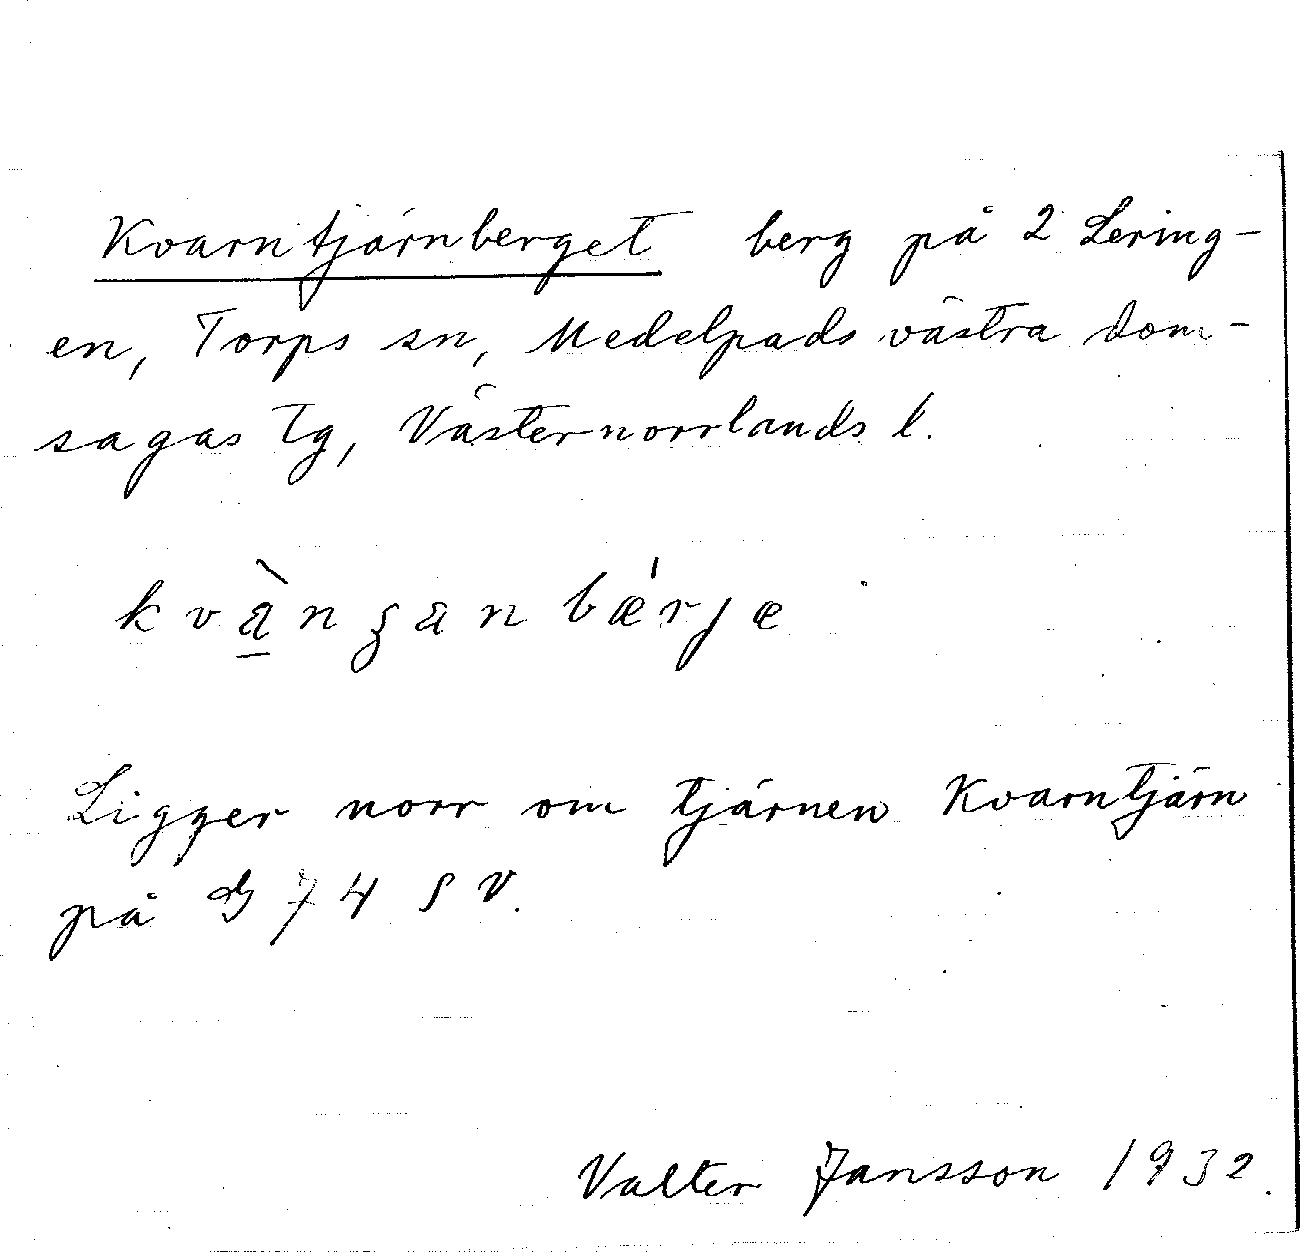 Kvarntjärnberget berg på 2 Lering-
en, Torps sn, Medelpads västra dom-
sagas tg, Västernorrlands l.
Ligger norr om tjärnen Kvarntjärn
på G 74 SV.
Valter Jansson 1932.